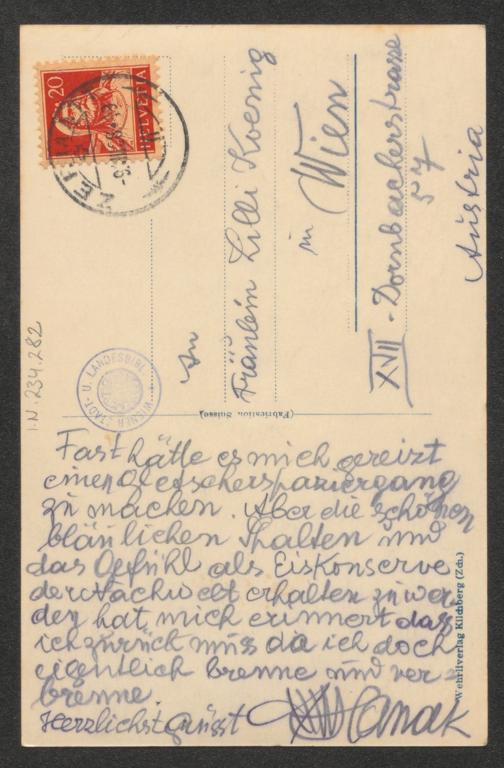 20
HELVETIA
ZERMATT
An
Fräulein Lilli Koenig
in
Wien
XVII. Dornbacherstrasse
57
Austria
I.N. 234.282
WIENER STADT- U. LANDESBIBL.
(Fabrication Suisse)
Fast hätte es mich gereizt
einen Gletscherspaziergang
zu machen. Aber die schönen
bläulichen Spalten und
das Gefühl als Eiskonserve
der Nachwelt erhalten zu wer-
den hat mich erinnert dass
ich zurück muss da ich doch
eigentlich brenne und ver-
brenne.
Herzlichst grüsst Hanak
Wehrliverlag Kilchberg (Zch.)